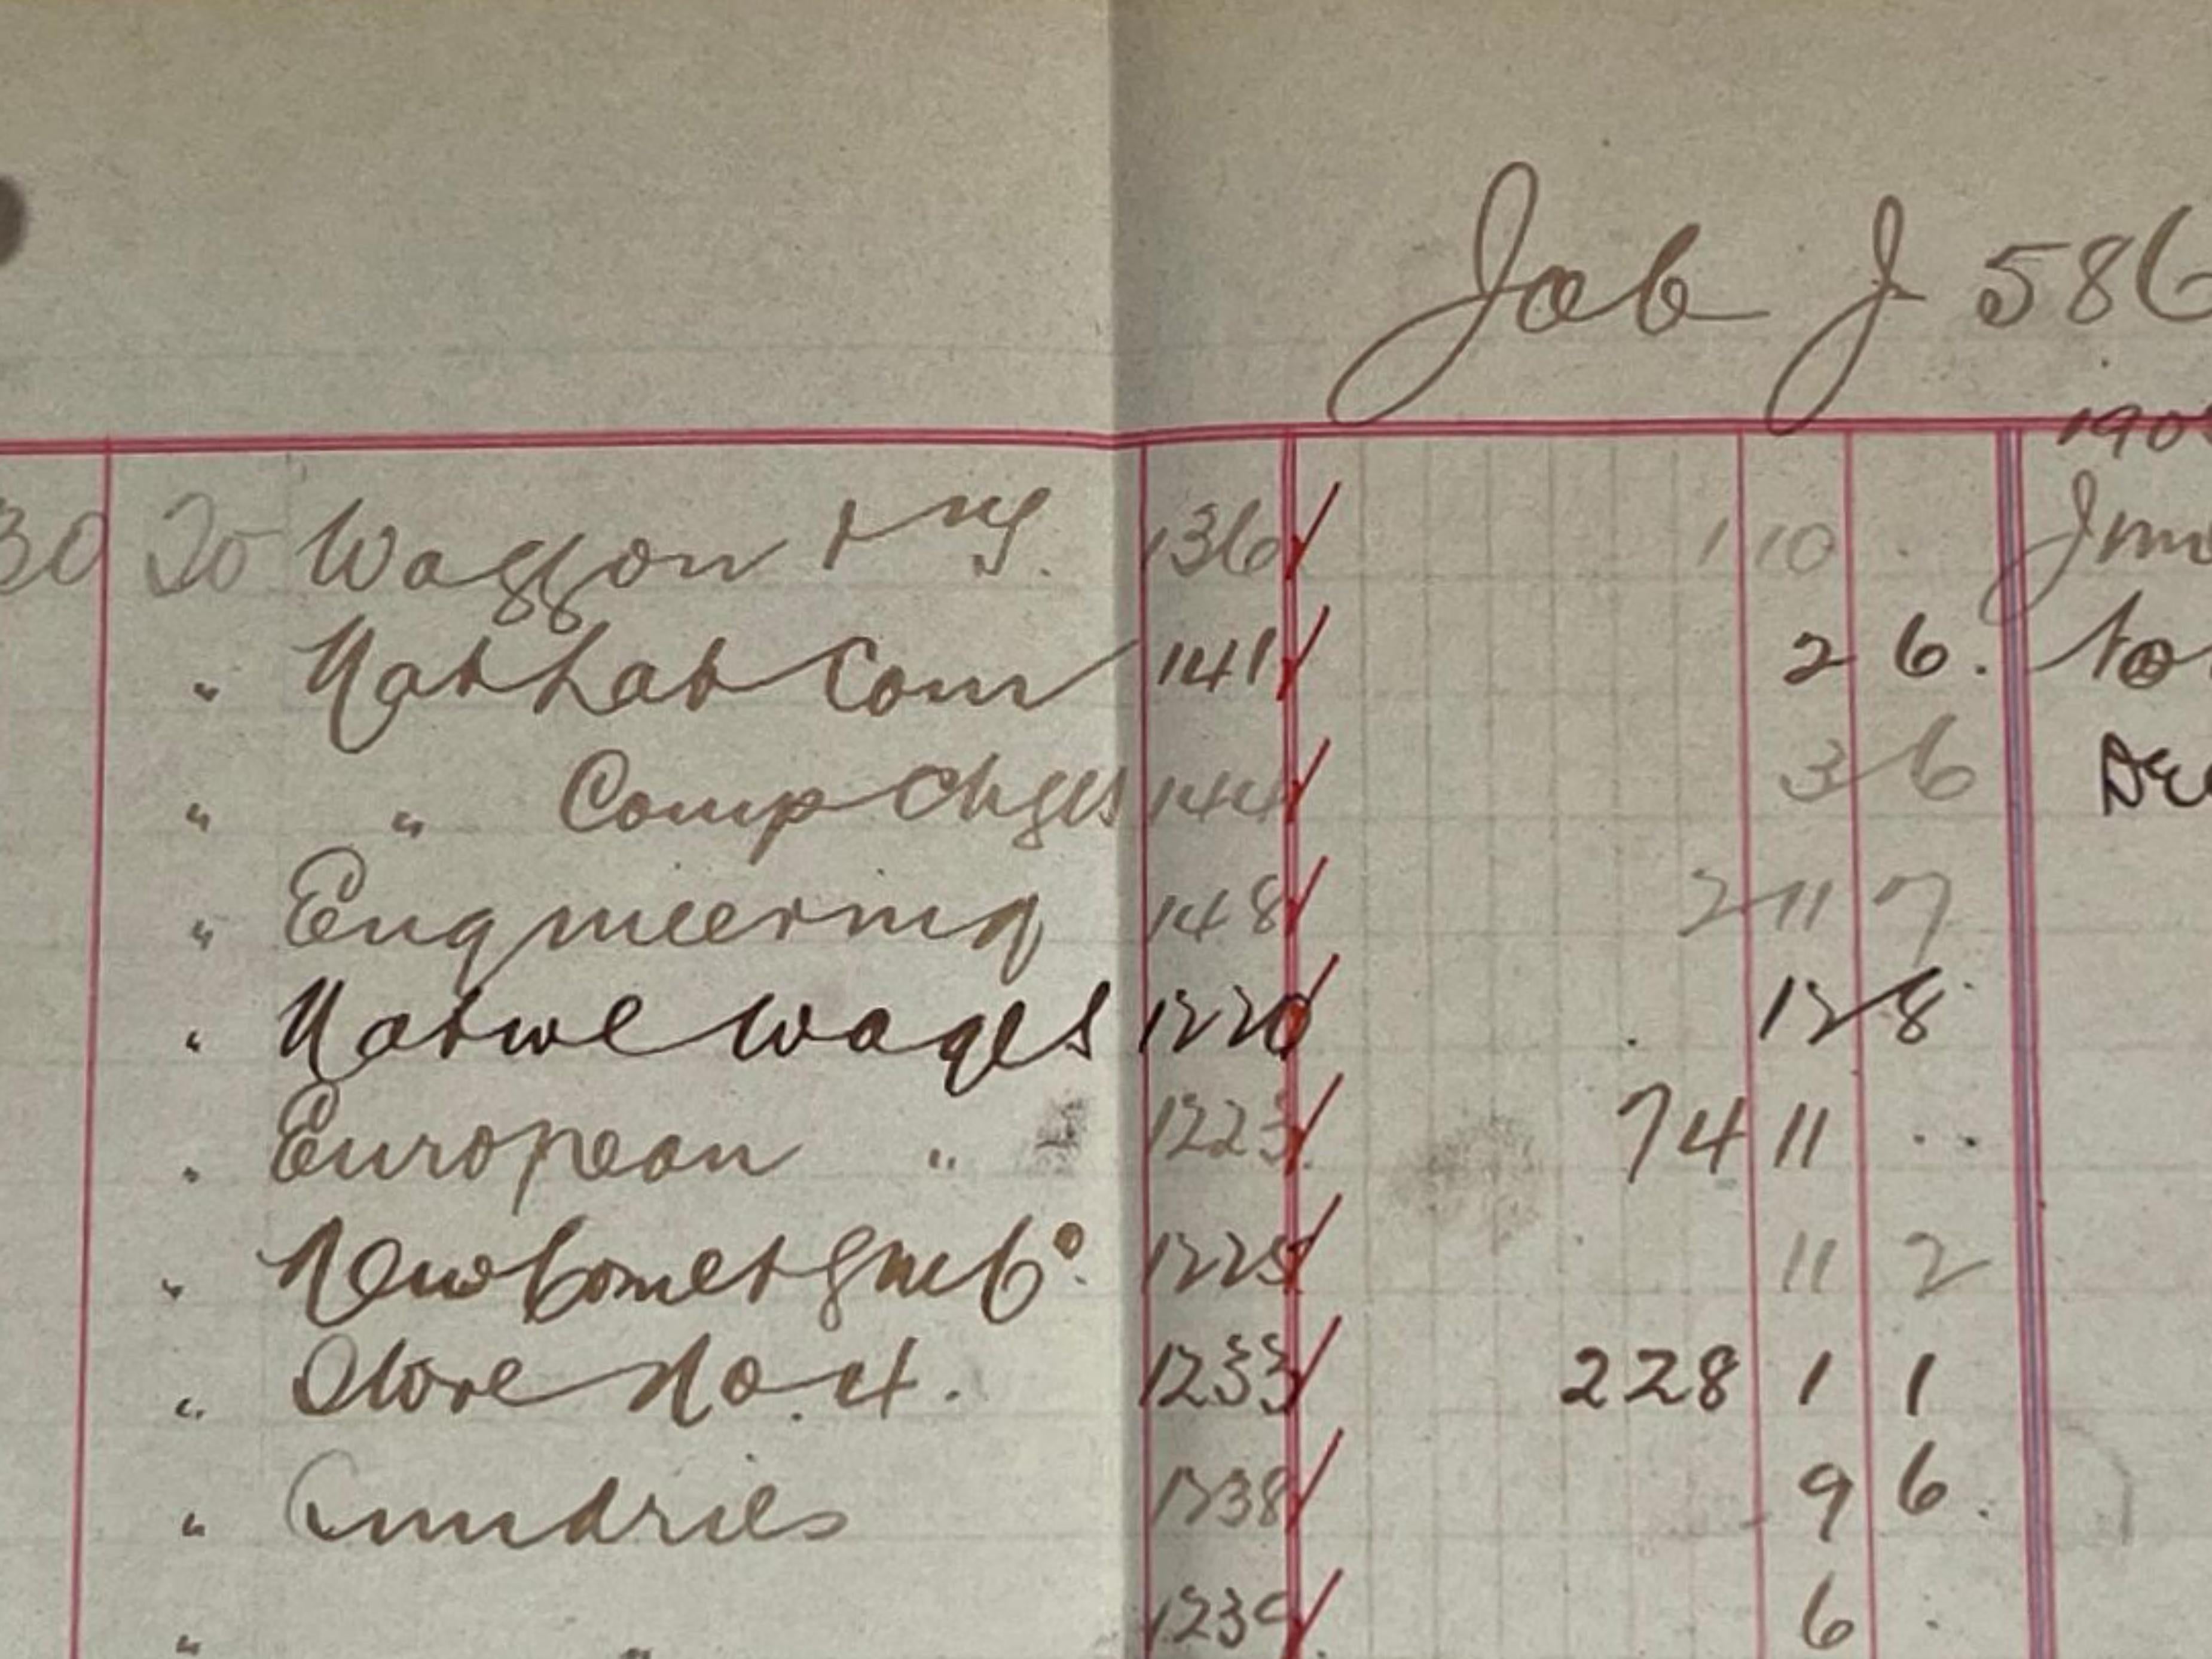 Job J 586
190
30 20 Waggon & mg. 136 1 10 .
" Nat Lab Com 141 2 6.
" " Comp Chges 144 3 6
" Engineering 148 2 11 7
" Native Wages 1220 . 12 8
" European " 1223 74 11 ..
" New Comet G M Co. 1225 11 2
" Store No. 4. 1233 228 1 1
" Sundries 1238 9 6.
" " 1239 6 .